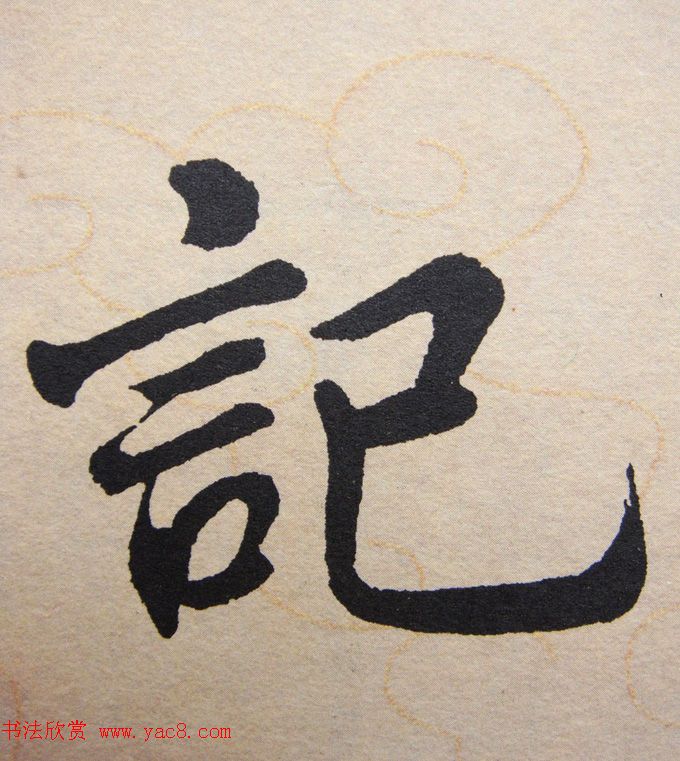 記
书法欣赏 www.yac8.com